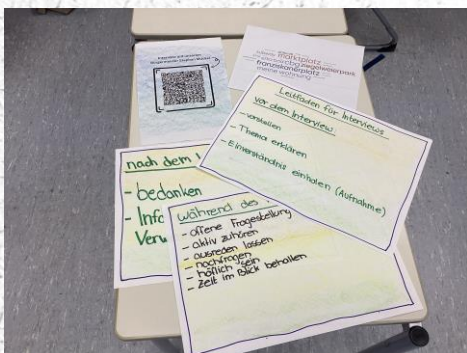 marktplatz
ziegeleimerpreis
franziskanerplatz
meine wohnung
Leitfaden für Interviews
vor dem Interview:
- vorstellen
- Thema erklären
- Einverständnis einholen (Aufnahme)
nach dem
- bedanken
- Info
Verw
während des
- offene Fragestellung
- aktiv zuhören
- ausreden lassen
- nachfragen
- höflich sein
- Zeit im Blick behalten